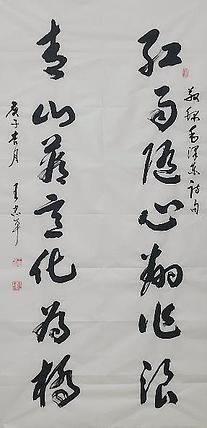 红雨随心翻作浪
敬录毛泽东诗句
青山着意化为桥
庚子吉月